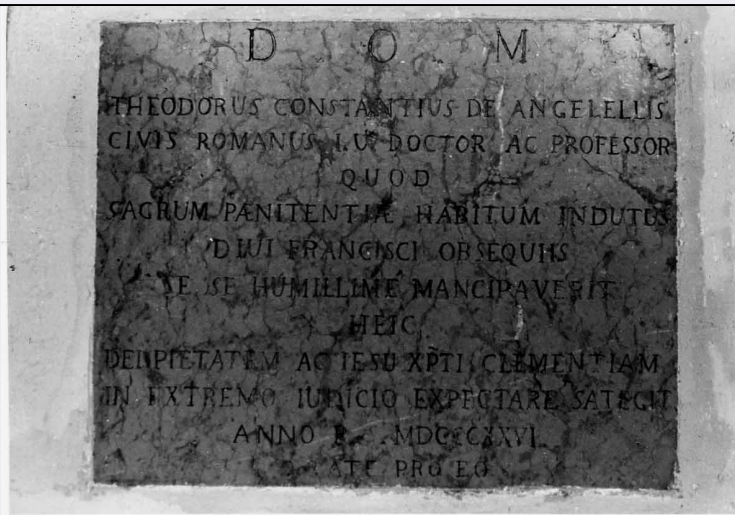 D O M
THEODORUS CONSTANTIUS DE ANGELELLIS
CIVIS ROMANUS I.U. DOCTOR AC PROFESSOR
QUOD
SACRUM PÆNITENTIÆ HABITUM INDUTUS
DIUI FRANCISCI OBSEQUIIS
SE HUMILLIME MANCIPAVERIT
HEIC
DEI PIETATEM AC IESU XPTI CLEMENTIAM
IN EXTREMO IUDICIO EXPECTARE SATEGIT
ANNO
PRO EO